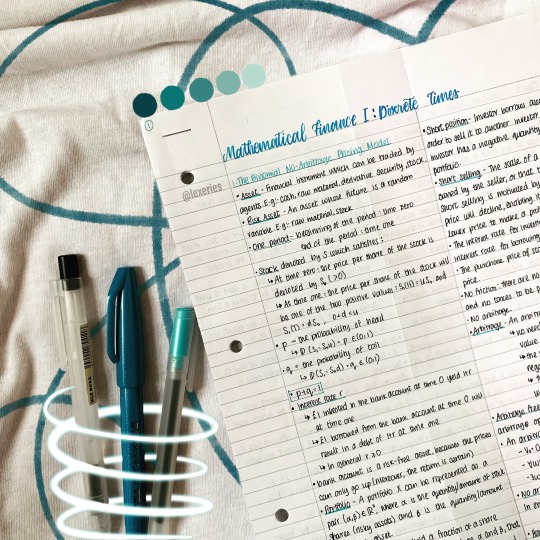 Mathematical Finance I : Discrete Times
@lexeries
1. The Binomial No-Arbitrage Pricing Model
• Asset - Financial instrument which can be traded by
agents. E.g: cash, raw material, derivative security, stock
• Risk Asset - An asset whose future is a random
variable. E.g: raw material, stock
• One period - beginning of the period : time zero
end of the period : time one
• Stock denoted by S which satisfies :
↳ At time zero : the price per share of the stock is
denoted by S₀ (>0)
↳ At time one : the price per share of the stock will
be one of the two positive values : S₁(H) = uS₀ and
S₁(T) = dS₀ , 0<d<u
• p = the probability of head
• q = the probability of tail
• p+q=1
• Interest rate r
↳ £1 invested in the bank account at time 0 yield 1+r
at time one
↳ £1 borrowed from the bank account at time 0 will
result in a debt of 1+r at time one
↳ In general r≥0
• bank account is a risk-free asset, because the prices
can only go up (moreover, the return is certain)
• Portfolio - A portfolio X can be represented as a
pair (α,β) ∈ R², where α is the quantity/amount of stock
shares (risky assets) and β is the quantity/amount
a fraction of a share
• Short position - Investor borrows
order to sell it to another investor
investor has a negative quantity
portfolio.
• Short selling - The sale of a
owned by the seller, or that
Short selling is motivated by
price will decline, enabling
lower price to make a
• The interest rate for
interest rate for borrowing
• The purchase price of
price.
• No friction : there are no
and no taxes to be
• No arbitrage.
• Arbitrage - An
↳ no
value
↳ the
↳
• Arbitrage free
arbitrage
• An